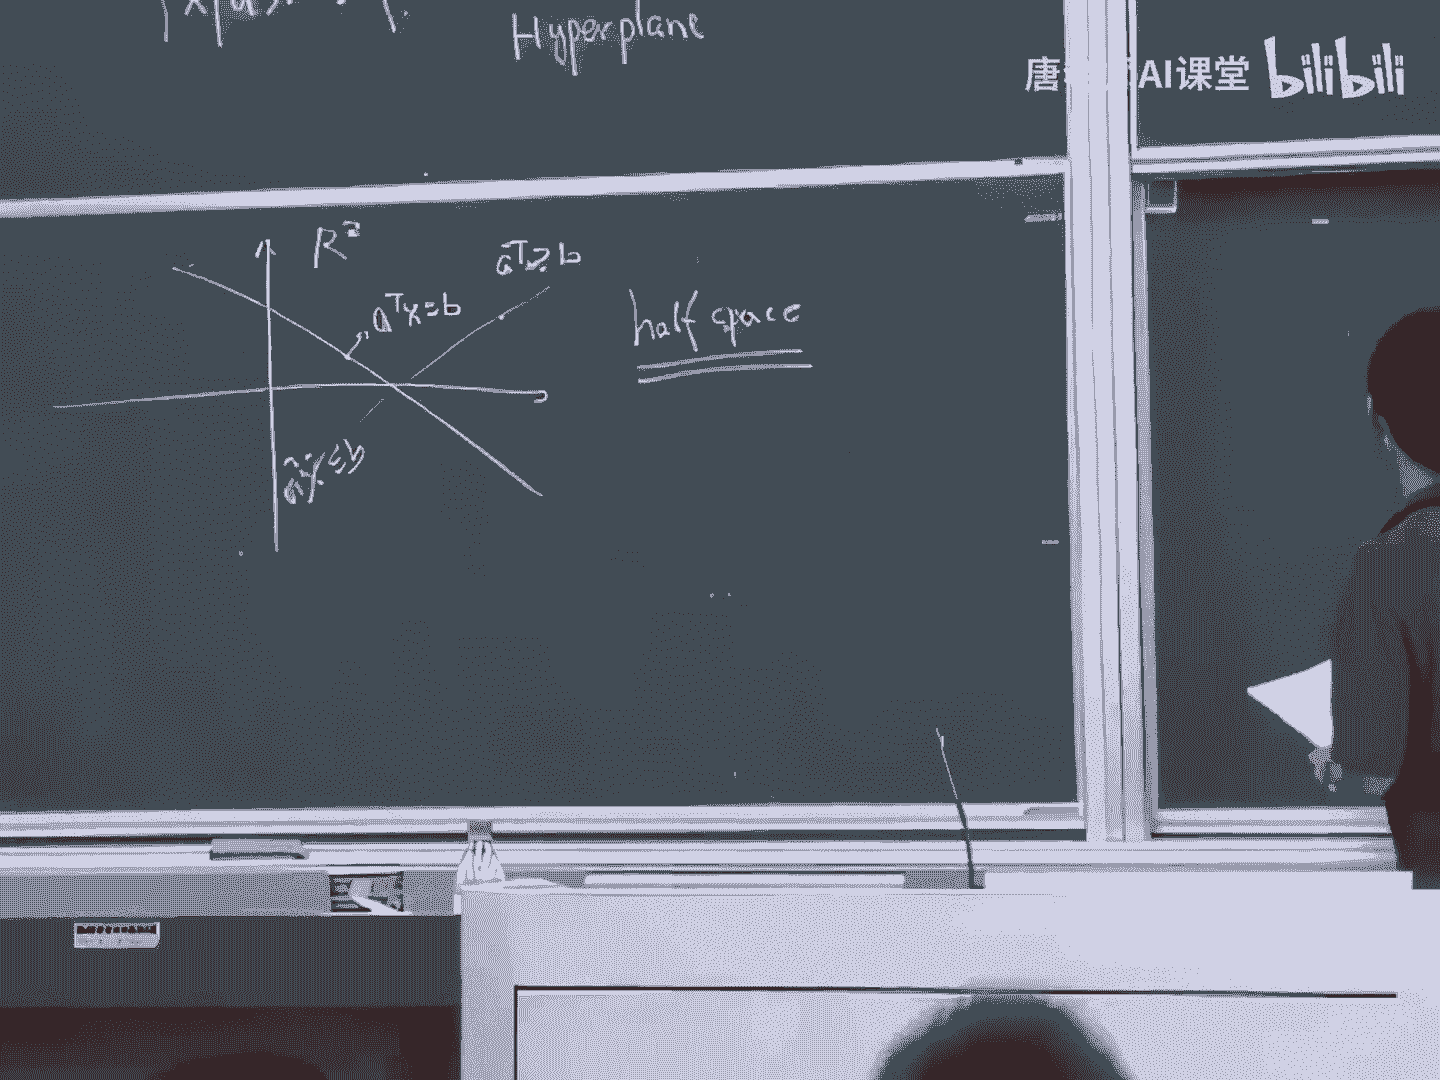 Hyperplane
唐 AI课堂 bilibili
R²
aᵀ≥b
aᵀx=b
half space
aᵀx≤b